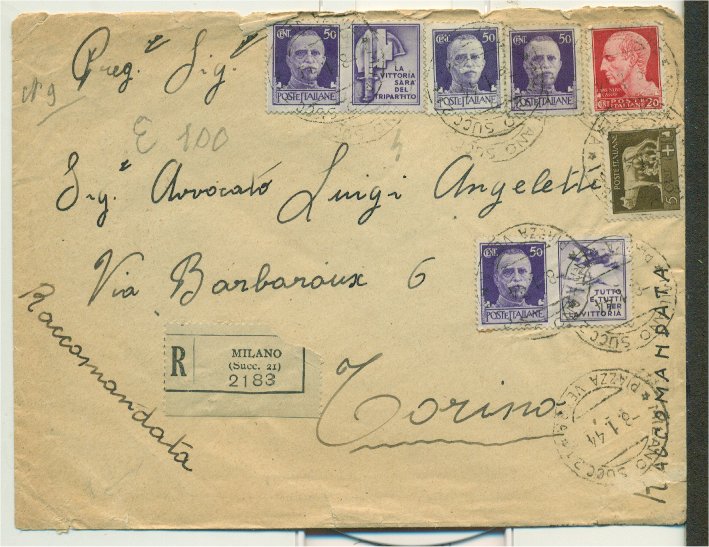 Preg.º Sig.º
CENT. 50
POSTE ITALIANE
LA VITTORIA SARÀ DEL TRIPARTITO
50
POSTE ITALIANE
CENT. 50
POSTE ITALIANE
POSTE ITALIANE
CENT. 20
Nº 9
E 100
Sig.º Avvocato Luigi Angeletti
POSTE ITALIANE
5
Via Barbaroux 6
CENT. 50
POSTE ITALIANE
TUTTO E TUTTI PER LA VITTORIA
Raccomandata
R
MILANO
(Succ. 21)
2183
Torino
RACCOMANDATA
MILANO SUCC. 21
PIAZZA
8.1.44